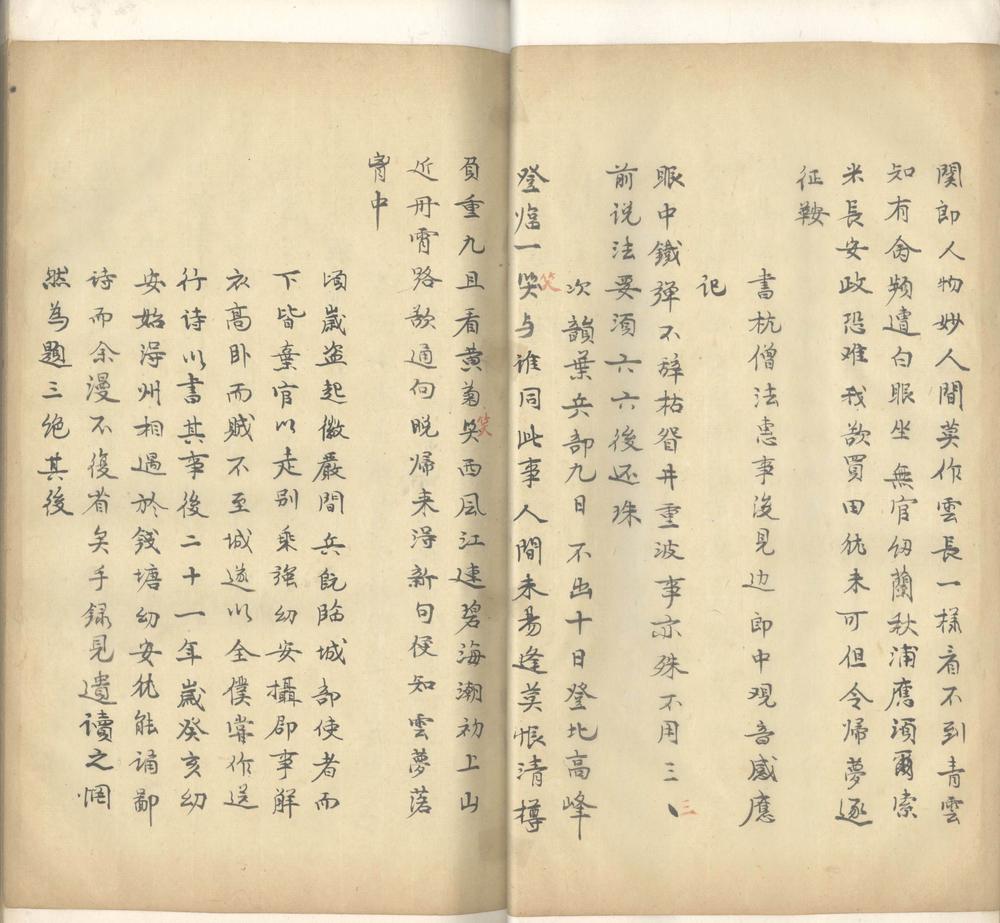 関郎人物妙人間莫作雲長一様看不到青雲
知有命頻遭白眼坐無官纫蘭秋浦應須爾索
米長安政恐难我欲買田犹未可但令帰夢逐
征鞍
書杭僧法恵事後見边郎中观音感應
记
眼中鐵彈不辞枯眢井重波事亦殊不用三丶
三
前说法要須六六後还珠
次韻葉兵部九日不出十日登北高峰
登临一㗛与谁同此事人間未易逢莫恨清樽
笑
負重九且看黄菊㗛西风江連碧海潮初上山
笑
近丹霄路欲通向晚帰来淂新句便知雲夢落
胷中
頃嵗盗起徽嚴間兵既臨城部使者而
下皆棄官以走别乗強幼安攝郡事解
衣高卧而贼不至城遂以全僕嘗作送
行诗以書其事後二十一年嵗癸亥幼
安始淂州相遇於錢塘幼安犹能誦鄙
诗而余漫不復省矣手録見遺讀之惘
然為題三绝其後